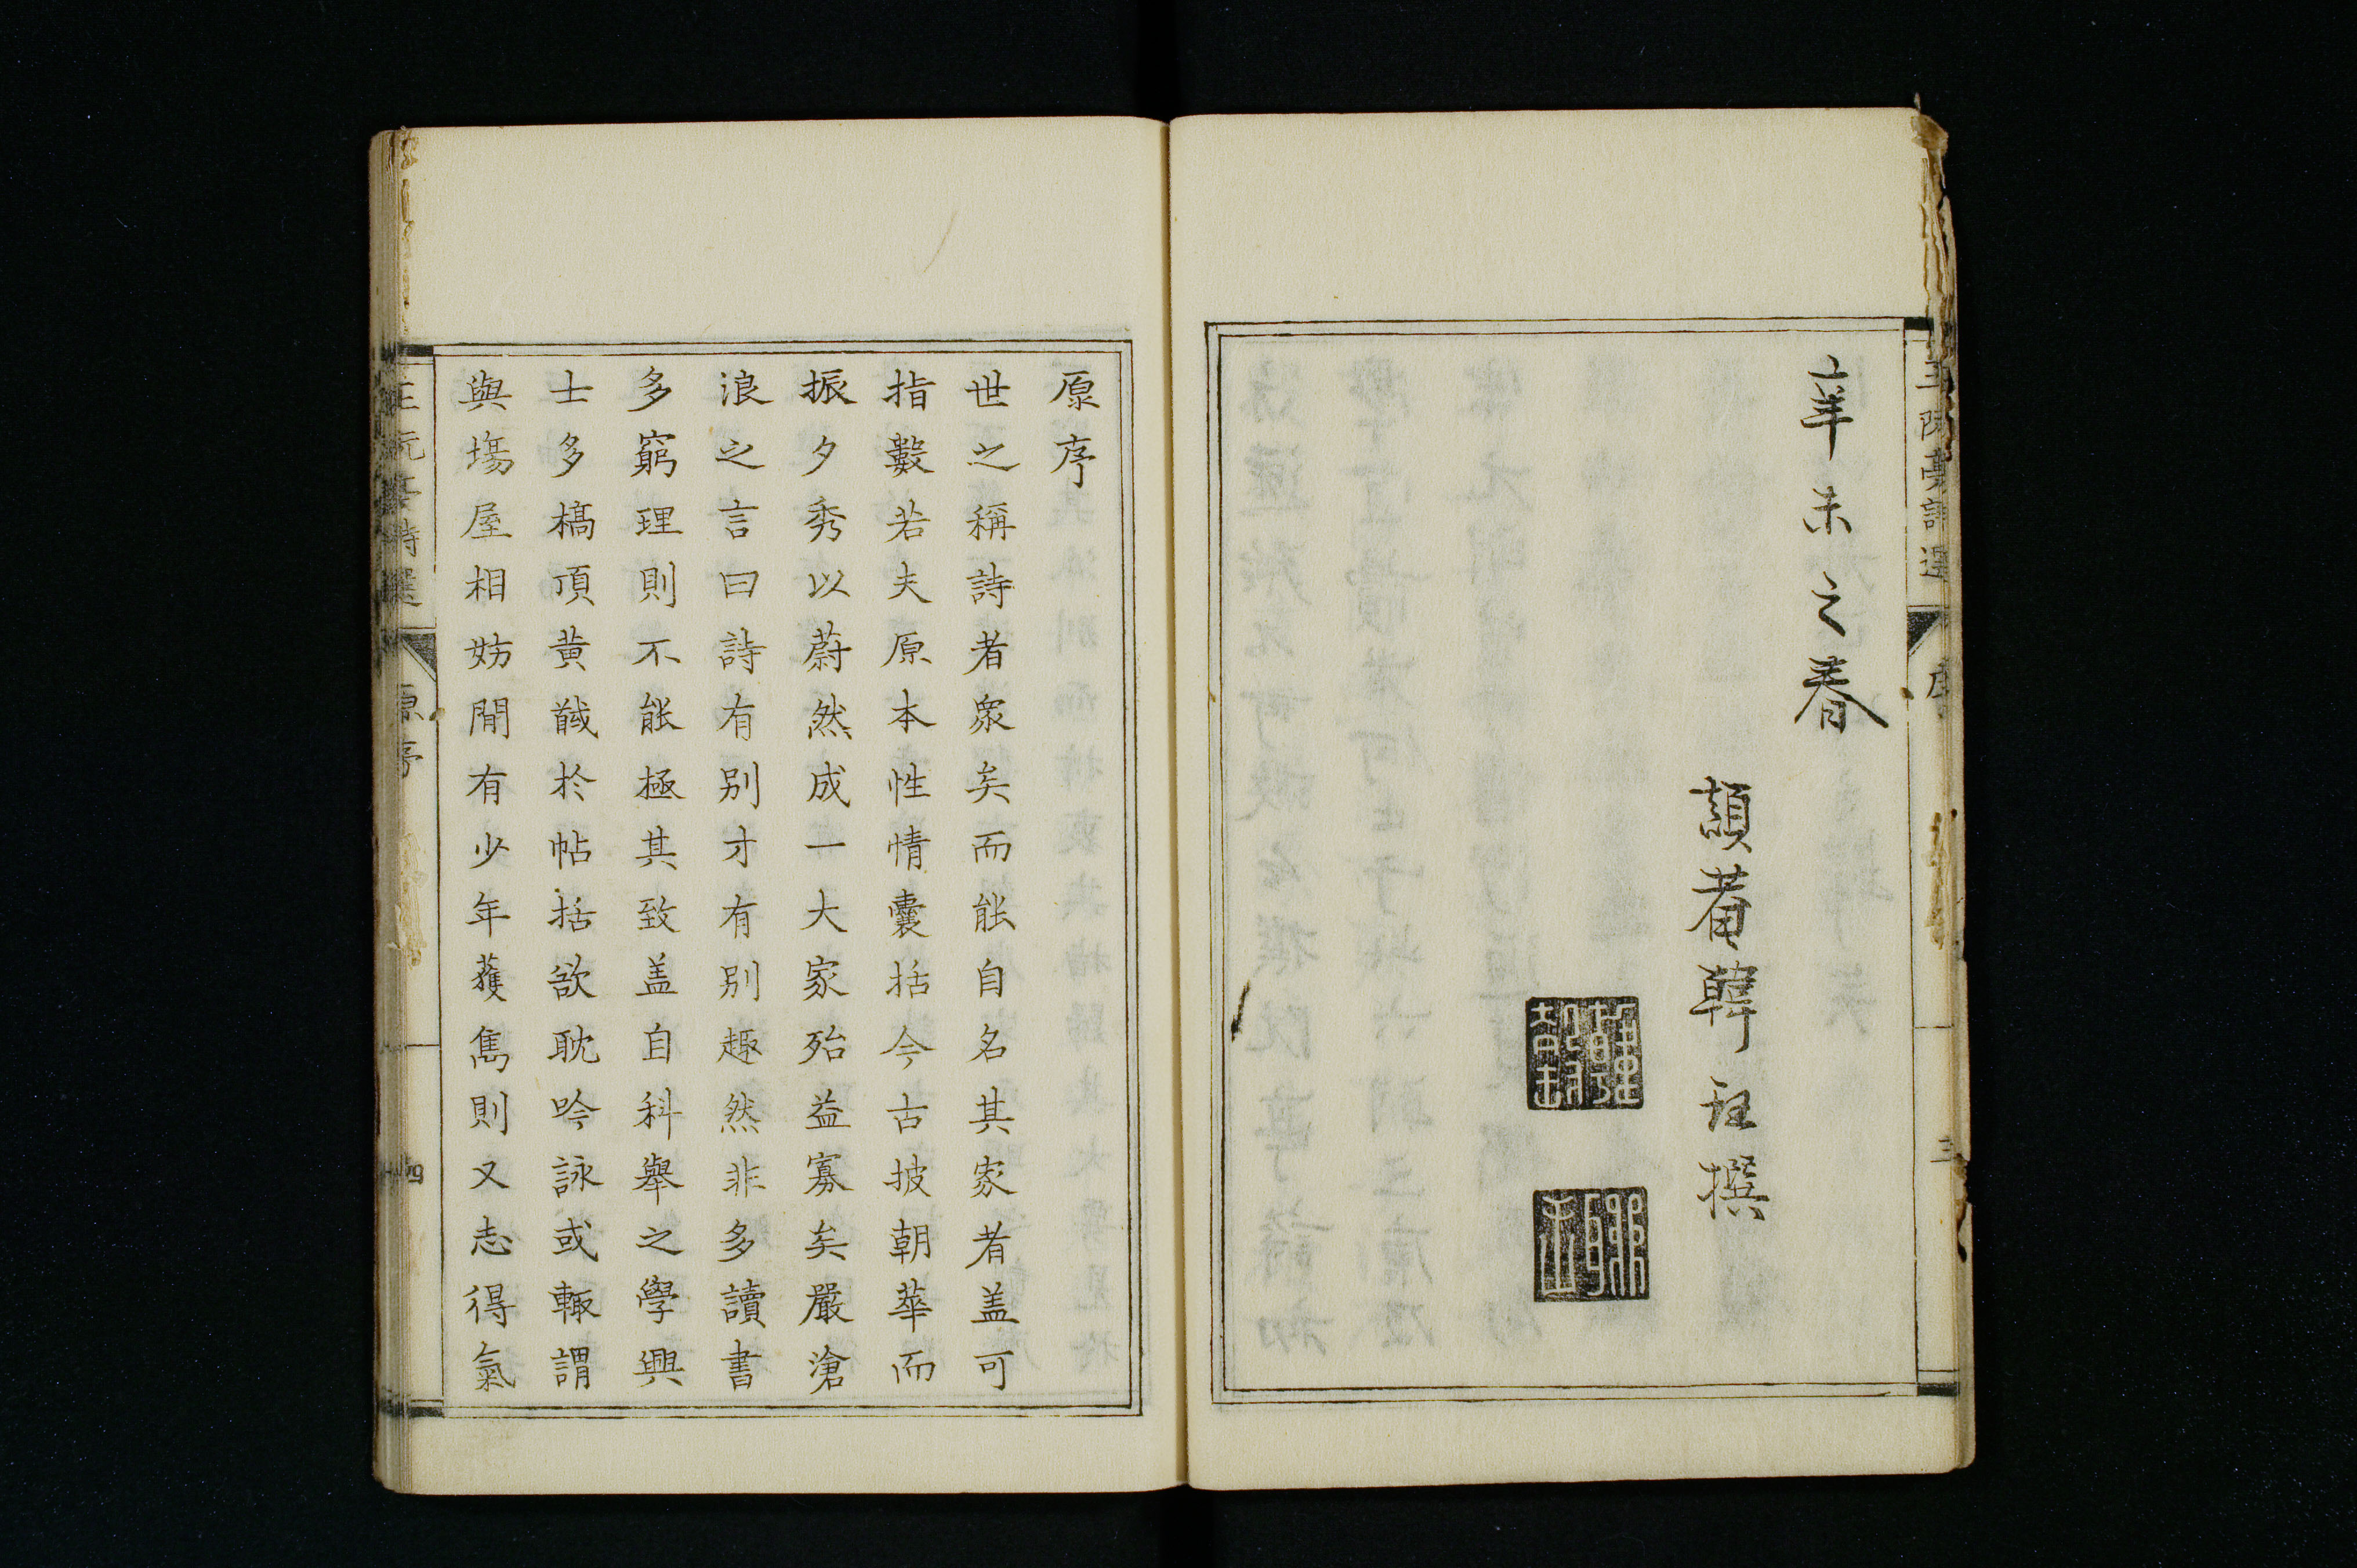 辛未之春
韓珏撰
原序
世之稱詩者衆矣而能自名其家者盖可
指數若夫原本性情囊括今古披朝華而
振夕秀以蔚然成一大家殆益寡矣嚴滄
浪之言曰詩有别才有别趣然非多讀書
多窮理則不能極其致盖自科舉之學興
士多槁項黄馘於帖括欲耽吟詠或輙謂
與塲屋相妨閒有少年獲雋則又志得氣
原序
四